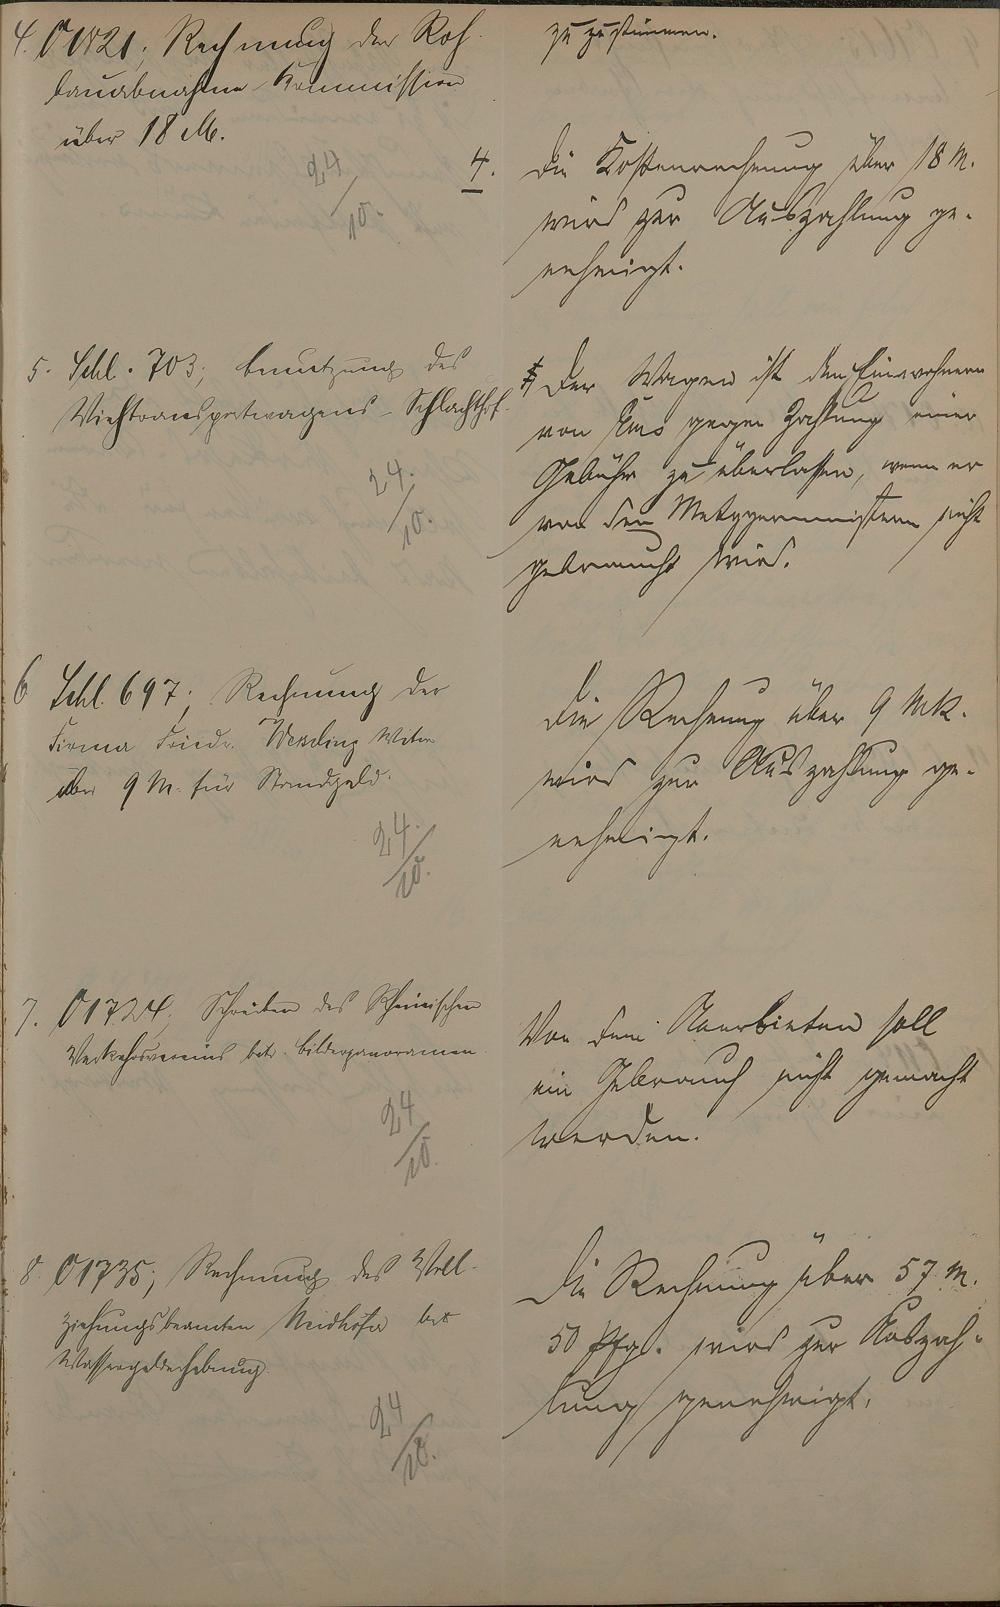 zuzustimmen.
4. O 1821; Rechnung der Roh-
bauabnahme Kommission
über 18 M.
24/10.
4. Die Kostenrechnung über 18 M.
wird zur Auszahlung ge-
nehmigt.
5. Schl. 703; Benutzung des
Viehtransportwagens - Schlachthof.
24./10.
5 Der Wagen ist den Einwohnern
von Ems gegen Zahlung einer
Gebühr zu überlassen, wenn er
von den Metzgermeistern nicht
gebraucht wird.
6 Schl. 697; Rechnung der
Firma Friedr.
über 9 M. für Standgeld.
24./10.
Die Rechnung über 9 Mk.
wird zur Auszahlung ge-
nehmigt.
7. O 1724; Schreiben des Rheinischen
Verkehrsvereins betr. Bilderpanoramen
24/10.
Von dem Anerbieten soll
ein Gebrauch nicht gemacht
werden.
8. O 1735; Rechnung des Voll-
ziehungsbeamten Neidhöfer bet
Wassergelderhebung.
24/10.
Die Rechnung über 57 M.
50 Pfg. wird zur Auszah-
lung genehmigt.